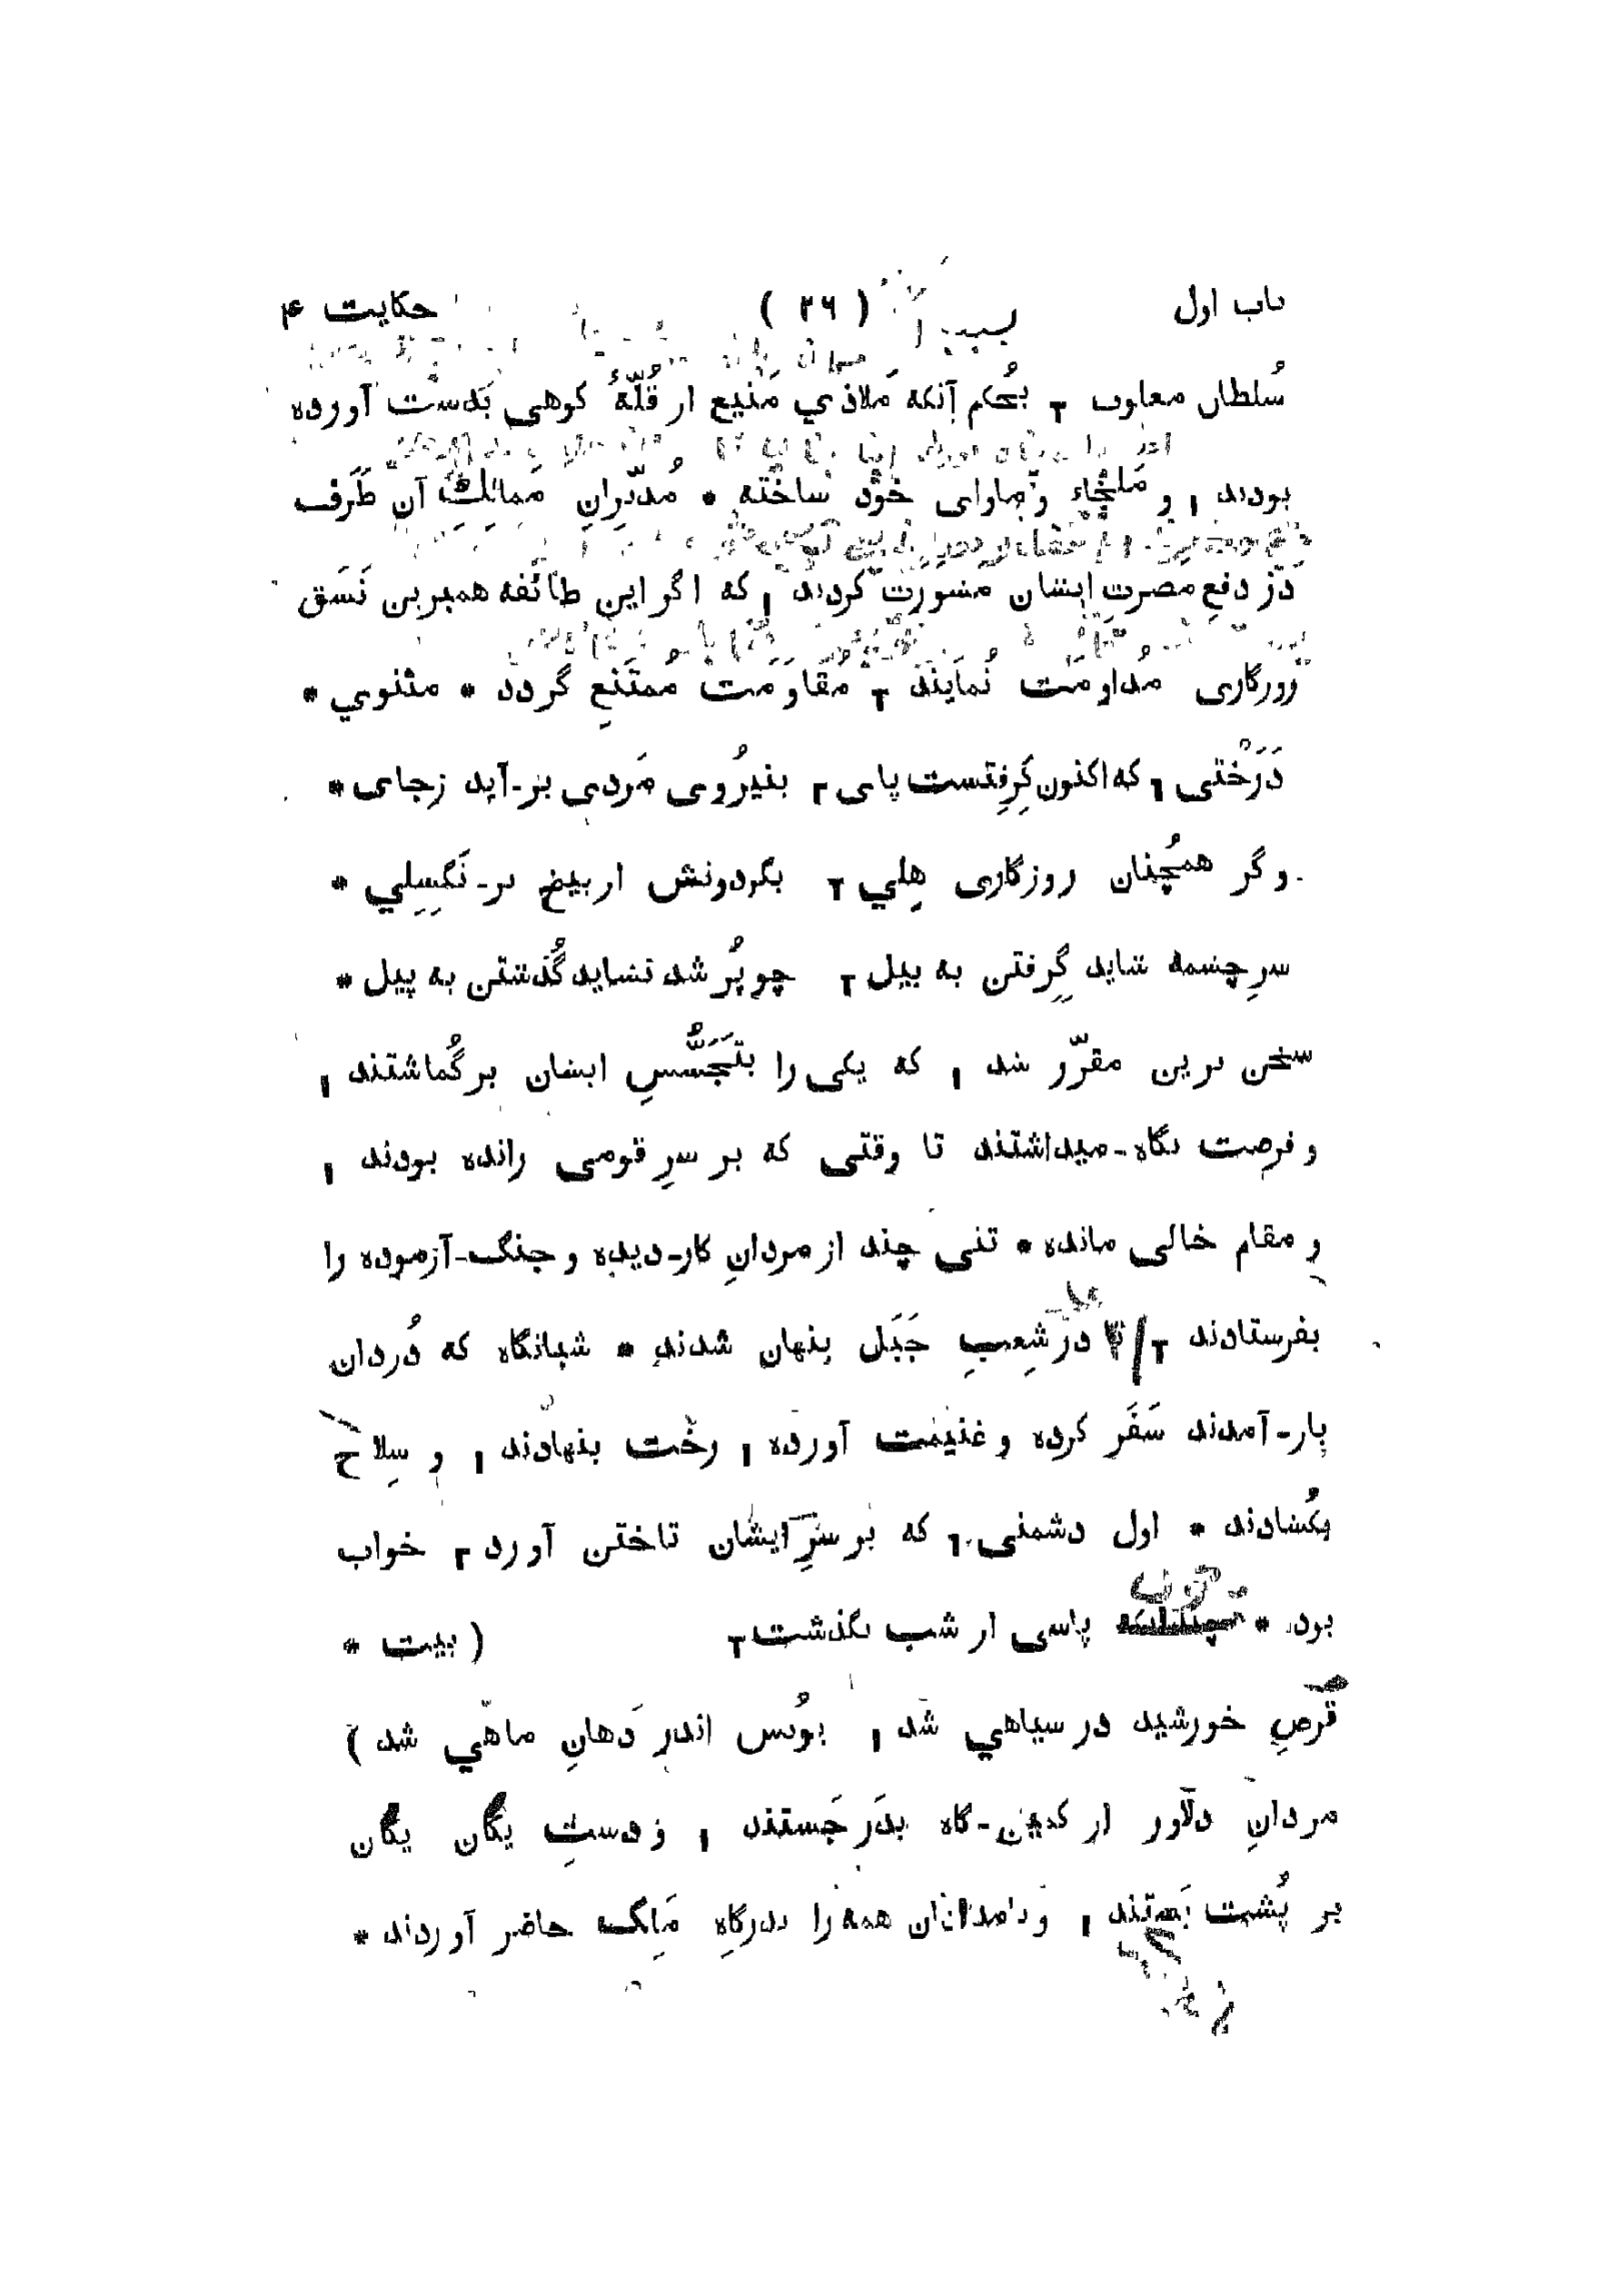 باب اول ( ۲۶ ) حکایت ۴
سُلطان مغلوب ٢ بحُکم آنکه مَلاذي مَنیع از قُلّهٔ کوهی بَدست آورده
بودند ١ و مَلجاء و ماوای خوُد ساخته * مُدبّرانِ مَمالِكِ آن طَرَف
در دفعِ مضرتِ ایشان مشورت کردند ١ که اگر این طائفه همبرین نَسَق
روزگاری مُداومَت نُمایند ٢ مُقاوَمَت مُمتَنِع گردد * مثنوي *
دَرَخْتی ٦ که اکنون گِرِفتست پای ٢ بنیرُوی مَردی بر-آید زجای *
وگر همچُنان روزگاری هِلي ٢ بگردونش از بیخ بر-نَگسِلي *
سرِ چشمه شاید گِرفتن به بیل ٢ چو پُر شد نشاید گُذشتن به پیل *
سخن برین مقرّر شد ١ که یکی را بتَجَسُّسِ ایشان برگُماشتند ١
و فرصت نگاه-میداشتند تا وقتی که بر سرِ قومی رانده بودند ١
و مقام خالی مانده * تنی چند از مردانِ کار-دیده و جنگ-آزموده را
بفرستادند ٢ تا در شِعبِ جَبَل پنهان شدند * شبانگاه که دُزدان
باز-آمدند سَفَر کرده و غنیمت آورده ١ رخت بنهادند ١ و سِلاح
بکُشادند * اول دشمنی ٦ که بر سرِ ایشان تاختن آورد ٢ خواب
بود * چندانکه پاسی از شب بگذشت ٢ ( بیت *
قُرصِ خورشید در سیاهي شد ١ یوُنس اندر دَهانِ ماهي شد )
مردانِ دلآور از کمین-گاه بدَر جَستند ١ و دستِ یگان یگان
بر پُشت بَستند ١ و بامدادان همه را بدرگاهِ مَلِك حاضر آوردند *